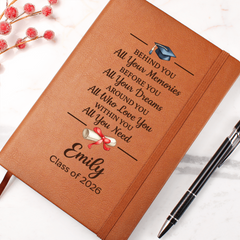 BEHIND YOU
All Your Memories
BEFORE YOU
All Your Dreams
AROUND YOU
All Who Love You
WITHIN YOU
All You Need
Emily
Class of 2026